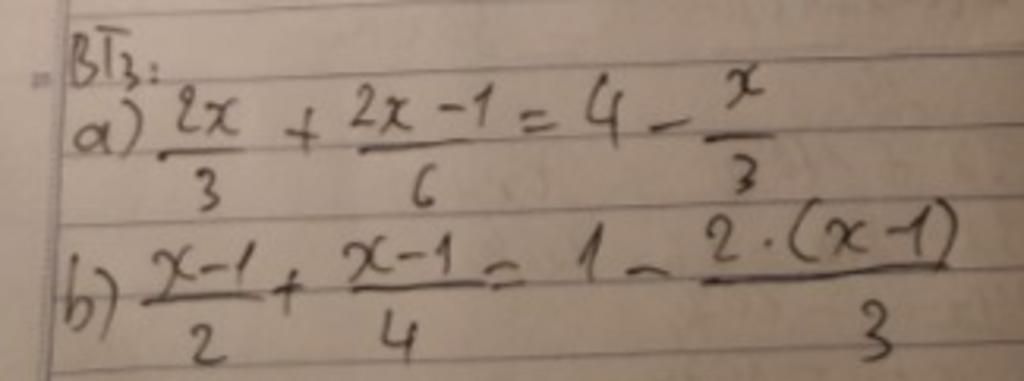 BT3:
a) 2x/3 + 2x-1/6 = 4 - x/3
b) x-1/2 + x-1/4 = 1 - 2.(x-1)/3